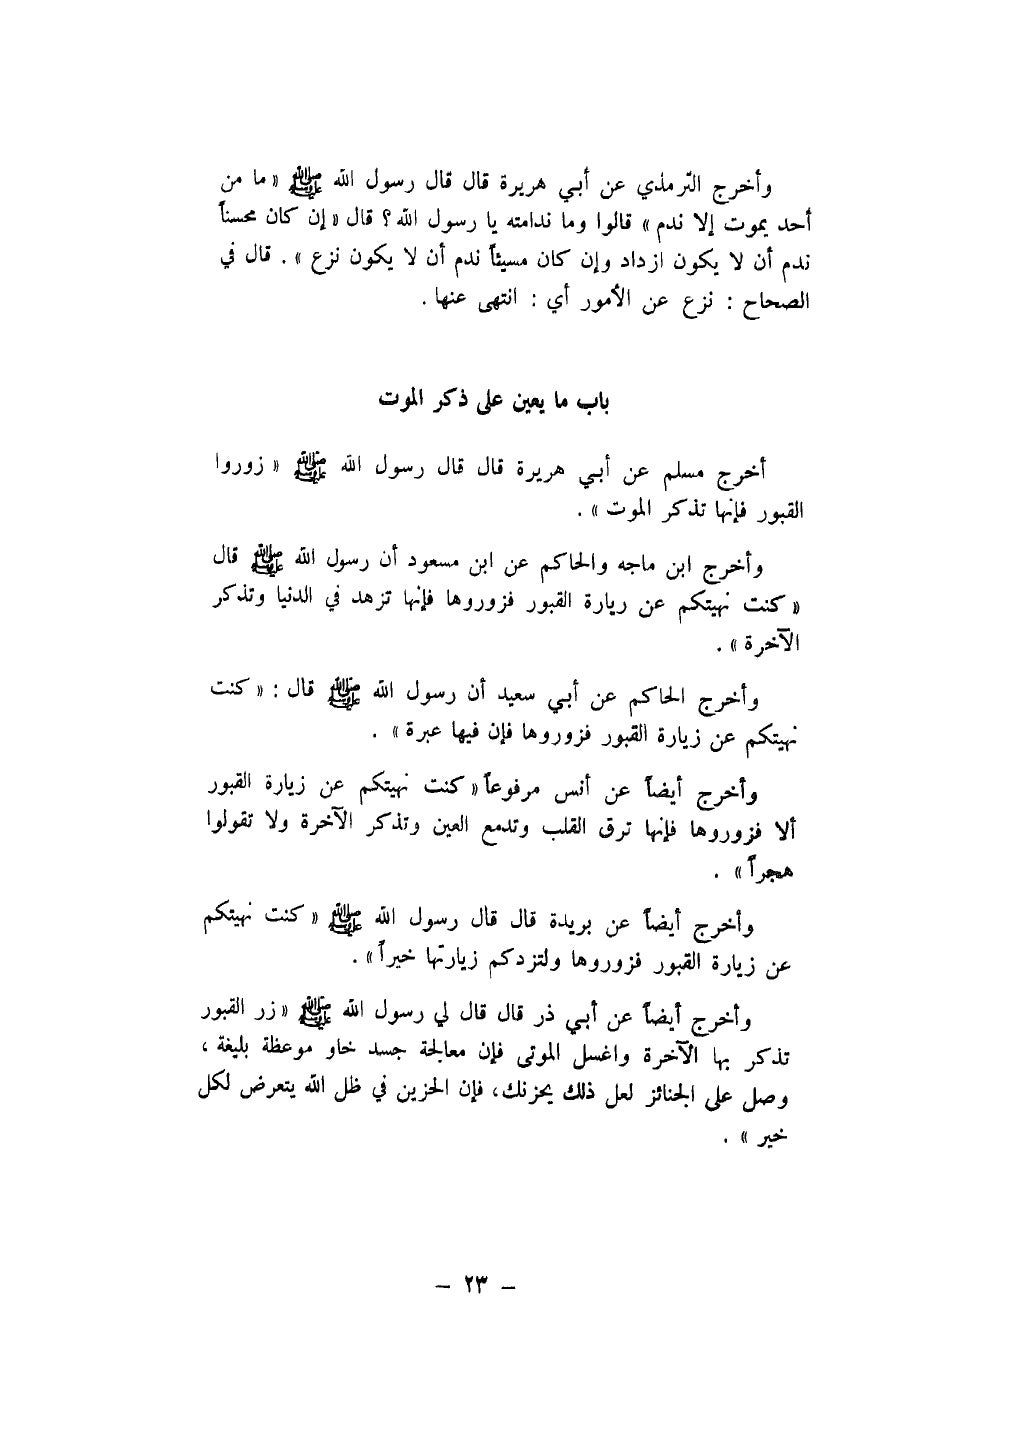 وأخرج الترمذي عن أبي هريرة قال قال رسول الله ﷺ « ما من
أحد يموت إلا ندم » قالوا وما ندامته يا رسول الله ؟ قال « إن كان محسناً
ندم أن لا يكون ازداد وإن كان مسيئاً ندم أن لا يكون نزع » . قال في
الصحاح : نزع عن الأمور أي : انتهى عنها .
باب ما يعين على ذكر الموت
أخرج مسلم عن أبي هريرة قال قال رسول الله ﷺ « زوروا
القبور فإنها تذكر الموت » .
وأخرج ابن ماجه والحاكم عن ابن مسعود أن رسول الله ﷺ قال
« كنت نهيتكم عن ريارة القبور فزوروها فإنها تزهد في الدنيا وتذكر
الآخرة » .
وأخرج الحاكم عن أبي سعيد أن رسول الله ﷺ قال : « كنت
نهيتكم عن زيارة القبور فزوروها فإن فيها عبرة » .
وأخرج أيضاً عن أنس مرفوعاً « كنت نهيتكم عن زيارة القبور
ألا فزوروها فإنها ترق القلب وتدمع العين وتذكر الآخرة ولا تقولوا
هجراً » .
وأخرج أيضاً عن بريدة قال قال رسول الله ﷺ « كنت نهيتكم
عن زيارة القبور فزوروها ولتزدكم زيارتها خيراً » .
وأخرج أيضاً عن أبي ذر قال قال لي رسول الله ﷺ « زر القبور
تذكر بها الآخرة واغسل الموتى فإن معالجة جسد خاو موعظة بليغة ،
وصل على الجنائز لعل ذلك يحزنك ، فإن الحزين في ظل الله يتعرض لكل
خير » .
– ٢٣ –